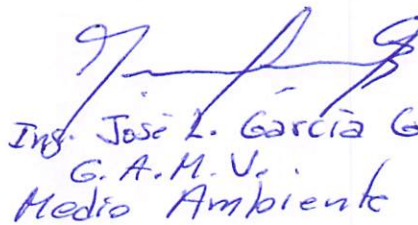 Ing. José L. García G
G.A.M.V.
Medio Ambiente